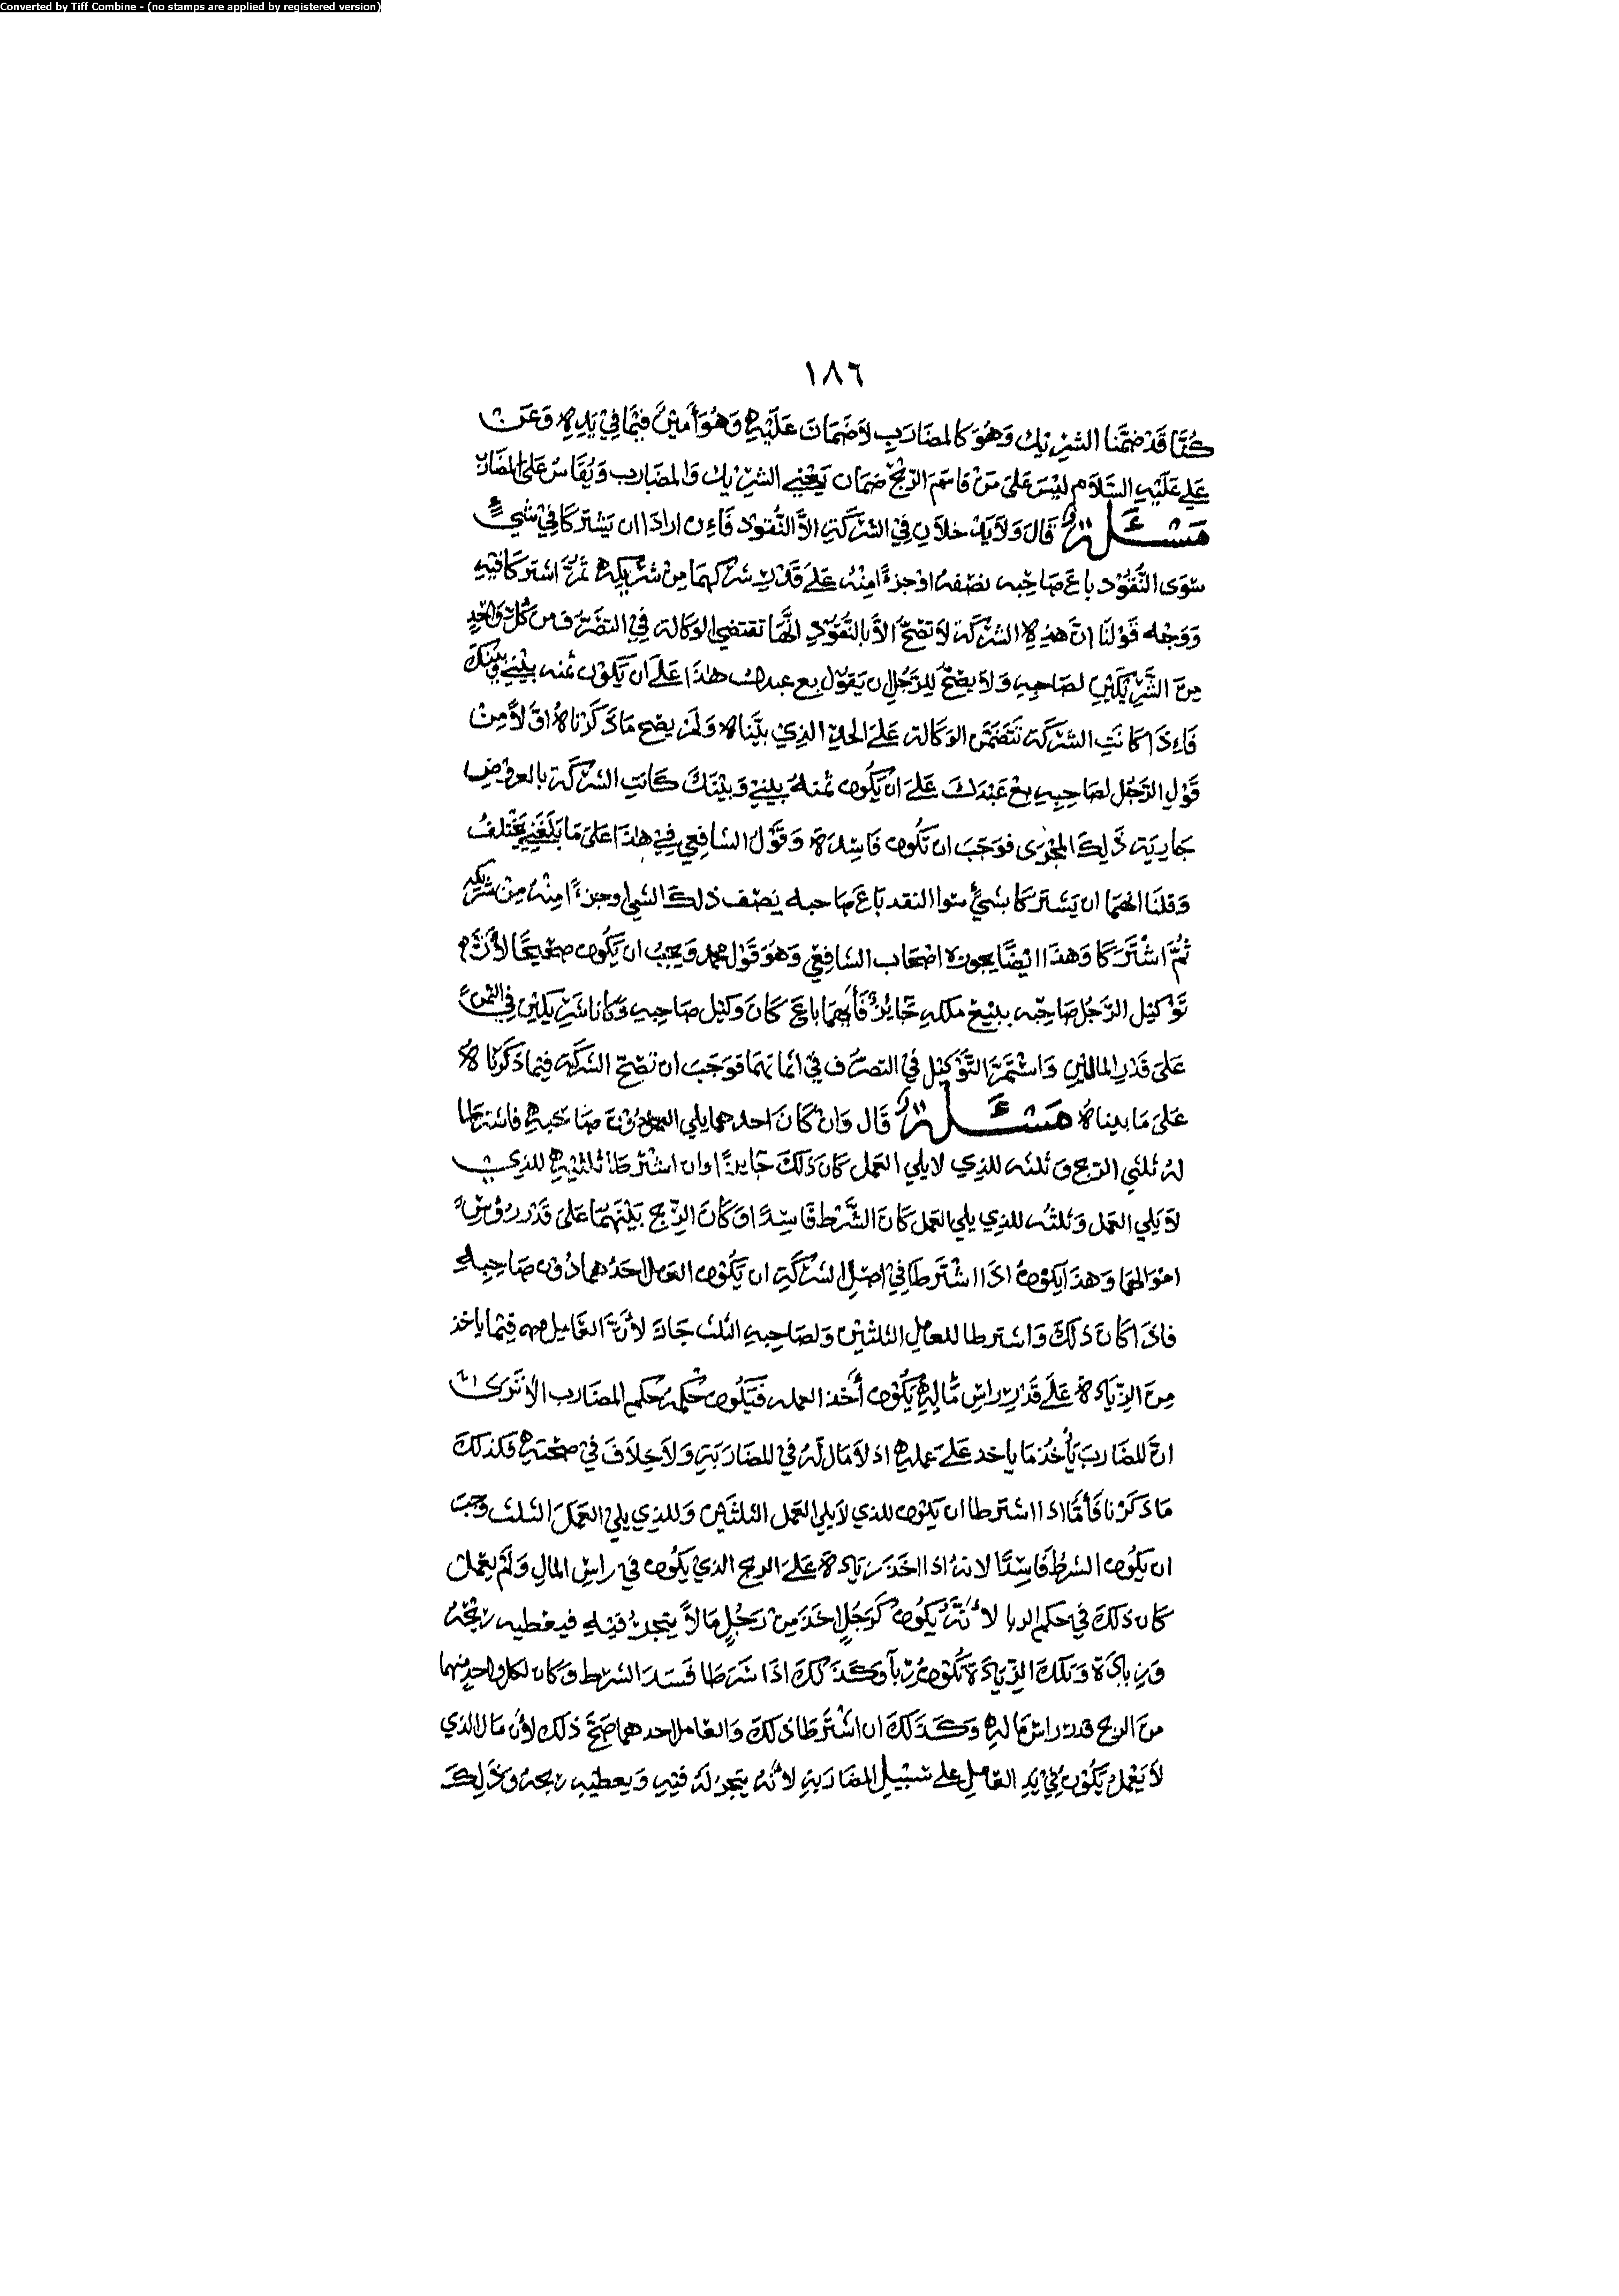 Converted by Tiff Combine - (no stamps are applied by registered version)
١٨٦
كُنَّا قَدْ ضَمَّنَا الشَّرِيْك وَهُوَ كَالمضَارَبِ لاَ ضَمَانَ عَلَيْهِ وَهُوَ أَمِيْنٌ فِيْمَا فِيْ يَدِهِ وَعَنْ
عَلِي عَلَيْهِ السَّلاَم لَيْسَ عَلَى مَنْ قَاسَمَ الرِّبْحَ ضَمَان يَعْنِي الشَّرِيْك وَالمضَارب وَيُقَاسُ عَلَى المضَارب
مَسْئَلة قَالَ وَلاَ يَدْخلاَنِ فِي الشّرْكَةِ الاَّ النُّقُوْد فَاِن ارادَا ان يَشْتَركَا فِيْ شَيءٍ
سِوَى النُّقُوْد بَاعَ صَاحِبه نصْفهُ اوْ جزءًا مِنْهُ عَلَى قَدْرِ شركهمَا مِنْ شَرِيْكِهِ ثُمَّ اشتركَا فيهِ
وَوَجْه قَوْلنَا انَّ هَذِهِ الشّرْكَة لاَ تَصْحُّ الاَّ بالنُّقُوْدِ انَّهَا تقتضي الوكالة فِي التصَرّف من كُلِّ وَاحِدٍ
مِنَ الشَّرِيْكَيْنِ لصَاحِبهِ وَلاَ يصْحُّ لِلرَّجُلِ ان يَقوْل بع عبدك هٰذَا عَلَى ان يَكُوْن ثمنه بَيْنِي وَبَيْنك
فَاِذَا كَانَتِ الشّركَة تتَضَمَّن الوَكالة عَلَى الحَدِّ الذِيْ بَيَّناه وَلَمْ يصِح مَا ذَكَرْناهُ اوَّلاً مِنْ
قَوْلِ الرَّجُل لصَاحِبِهِ بِعْ عَبْدَكَ عَلَى انْ يَّكُون ثمنهُ بينِيْ وَبيْنَكَ كَانَتِ الشّركَة بالعروْضِ
جَارِيَة ذَلِكَ المجْرَى فوَجَبَ ان تكُون فَاسِدَة وَقَوْلُ الشافِعِي فِيْ هٰذَا عَلَى مَا بَلَغَنِي يَخْتلفُ
وَقلنَا انهمَا ان يَشتركَا بشَيءٍ سوا النقد بَاعَ صَاحبه نِصْف ذلكَ الشي او جزءًا مِنْهُ مِنْ شَرِيْكِهِ
ثُمَّ اشْتَرَكَا وَهَذَا ايْضًا يجوزه اصْحَاب الشافِعِيّ وَهُوَ قَوْل محمد وَيَجِبُ ان يَّكُون صَحِيْحًا لأنَّ
تَوْكيْل الرّجُل صَاحِبه ببَيْعِ ملكهِ جَايزٌ فَأيهمَا باعَ كَانَ وَكيْل صَاحِبهِ وَكَانَا شَرِيْكَيْنِ فِي الثمنِ
عَلَى قَدْرِ المالَيْنِ وَاسْتَمَرَّ التَّوْكيْل فِيْ التصَرّف فِيْ اثمانهمَا فوَجَبَ ان تصْحّ الشركَة فِيمَا ذكَرْناهُ
عَلَى مَا بيناهُ مَسْئَلة قَال وَانْ كَانَ احدهمَا يلي العمل دُوْنَ صَاحبهِ فاشترطا
لهُ ثلثي الرّبح وَثلثه للذِي لاَ يلي العَمل كَان ذَلكَ جَايزًا وَان اشْتَرطا ثلثيْهِ للذِي
لاَ يَلِي العَمل وَثلثه للذِي يلِي العَمل كَانَ الشَّرْط فَاسِدًا وَكَانَ الرِّبْح بَيْنهُمَا عَلَى قَدْر رُؤُوْسِ
امْوَالهمَا وَهذَا يَكوْن اذَا اشْتَرَطَا فِيْ اصْلِ الشركَةِ ان يَّكُوْن العَمل لاحَدهُمَا دُوْن صَاحِبِهِ
فاذَا كَانَ ذَلكَ وَاشترطا للعامِل الثلثيْنِ وَلصَاحِبهِ الثلث جَازَ لأنَّ العَامِل فِيْمَا ياخذ
مِنَ الزِّيَادَة عَلَى قَدْرِ راسِ مَالِهِ يَكُوْن أخذ العمله فَيَكُون حُكمهُ حُكم المضَارب الاَ تَرَى
انَّ المضَاربَ يَأخُذ مَا ياخد عَلَى عَملهِ اذ لاَ مَال لَهُ فِي المضَارَبَةِ وَلاَ خِلاَفَ فِيْ صحّتهِ فَكذلكَ
مَا ذكَرْنا فَأمَّا اذا اشترطا ان يكوْن للذي لاَ يلي العَمل الثلثَيْنِ وَللذِي يلِي العَمَل الثلث وَجَبَ
ان يكُون الشرْط فَاسِدًا لانهُ اذا اخَذَ زيَادة عَلَى الربح الذِيْ يَكُون فِي راسِ المَالِ وَلَمْ يعْمل
كَان ذلكَ فِي حكم الربا لأَنَّهُ يَكُوْن كَرَجُلٍ اخَذَ مِنْ رَجُلٍ مَالاً يتجرُ فِيْهِ فيعْطيه ربْحَهُ
وَزِيادَة وَتلكَ الزِّيَادَة تَكُوْن رِبًا وَكَذَلكَ اذَا شَرَطَا فَسَدَ الشرْط وَكَان لكل وَاحدٍ منهما
منَ الربح قدر راسْ مَالهِ وَكَذَلكَ ان اشْتَرطَا ذلكَ وَالعَامل احدهما صَحَّ ذلك لأن مَال الذي
لاَ يَعْمل يَكُوْن فِيْ يَدِ العَامِل على سَبيْلِ المضَارَبَةِ لأنهُ يتجر لهُ فيْهِ وَيعطيْهِ ربحهُ وَذَلِكَ